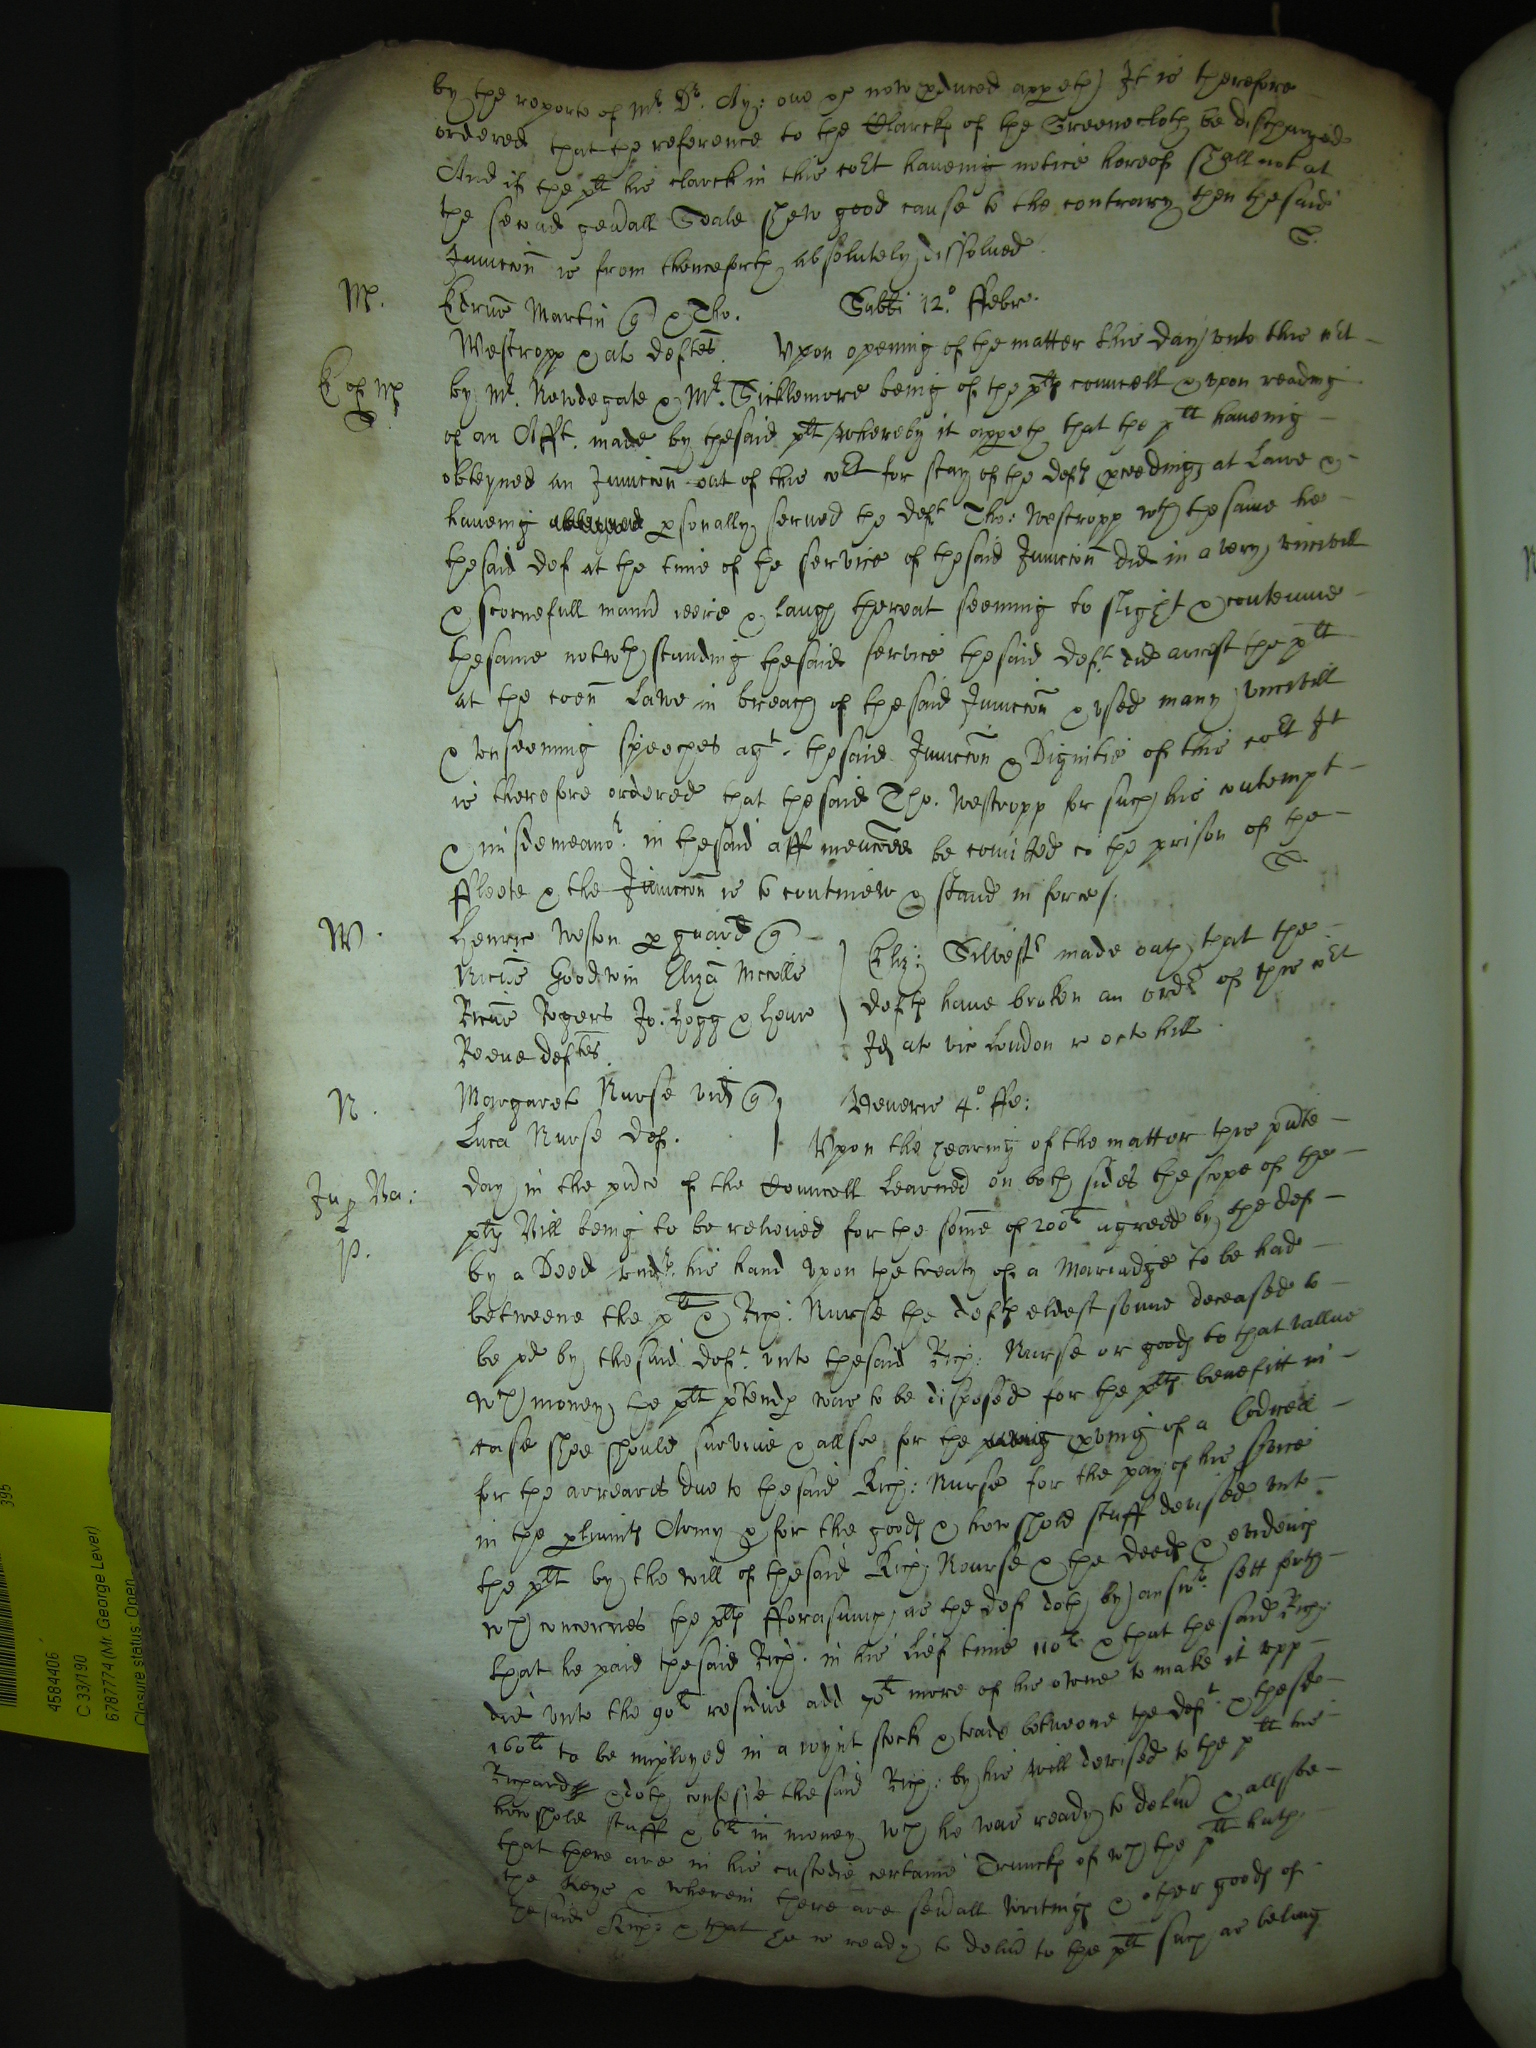 by the reporte of Mr. Dr. Ay: one of now pduced appeth) It is therefore
ordered that the reference to the Clarck of the Greenecloth be discharged
And if the plt his clarck in this cort haueing notice hereof shall not at
the second genall Seale shew good cause to the contrary then the said
Iniunccon is from thenceforth absolutely dissolued.
S.
M.
Martin q & Tho.
Sabbti 12.o ffebr.
Westropp & al deftes.
Vpon opening of the matter this day vnto this cort
by Mr. Newdegate & Mr. Sicklemore being of the plts councell & vpon reading
of an Afft. made by the said plt whereby it appeth that the plt haueing
obteyned an Iniunccon out of this cort for stay of the defts pceedings at Lawe &
haueing psonally serued the deft Tho: Westropp wth the same he
the said def at the time of the service of the said Iniunccon did in a very vncivill
& scornefull mann ieere & laugh thereat seeming to slight & contemne
the same notwthstanding the said service the said deft. did arrest the plt
at the coen Lawe in breach of the said Iniunccon & vsed many vncivill
& vnseeming speeches agt. the said Iniunccon & Dignitie of this cort It
is therefore ordered that the said Tho. Westropp for such his contempt
& misdemeanor. in the said aff menconed be comitted to the prison of the
ffleete & the Iniunccon is to contineu & stand in force/.
S.
W.
Henric Weston p guard q
Ricus Goodwin Eliza
Ricus Rogers Jo: Hogg & Henr
Reeve deftes.
Eliz: Silvestr made oath that the
defts haue broken an ordr of this cort
Id at vic London r octo hill
N.
Margaret Nurse vid q
Luca Nurse def.
Veneris 4.o ffe:
Vpon the hearing of the matter this pnte
day in the pnce of the Councell Learned on both sides the scope of the
plts Bill being to be releiued for the some of 200li agreed by the def
by a Deed vndr. his hand vpon the treaty of a Mariadge to be had
betweene the plt & Rich: Nurse the defts eldest sonne deceased to
be pd by the said deft. vnto the said Rich: Nurse or goods to that vallue
wch money the plt ptends was to be disposed for the plts benefitt in
case shee should survive & allsoe for the pving of a Codicell
for the arreares due to the said Rich: Nurse for the pay of his svice
in the pliamts Army & for the goods & howshold stuff devised vnto
the plt by the will of the said Rich: Nourse & the deeds & evidencs
wch concernes the plts fforasmuch as the def doth by answr. sett forth
that he paid the said Rich: in his life time 110li & that the said Rich:
did vnto the 90li residue add 70li more of his owne to make it vpp
160li to be imployed in a ioynt stock & trade betweene the deft. & the sd
Richard & doth confesse the said Rich: by his will devised to the plt his
howshold stuff & 6li in money wch he was ready to deliu & allsoe
that there are in his custodie certaine Trunckes of wch the plt hath
the keyes & wherein there are seuall writings & other goods of
the said Rich: & that he is ready to deliu to the plt such as belong
395
4584406
C 33/190
6787774 (Mr. George Lever)
Closure status: Open